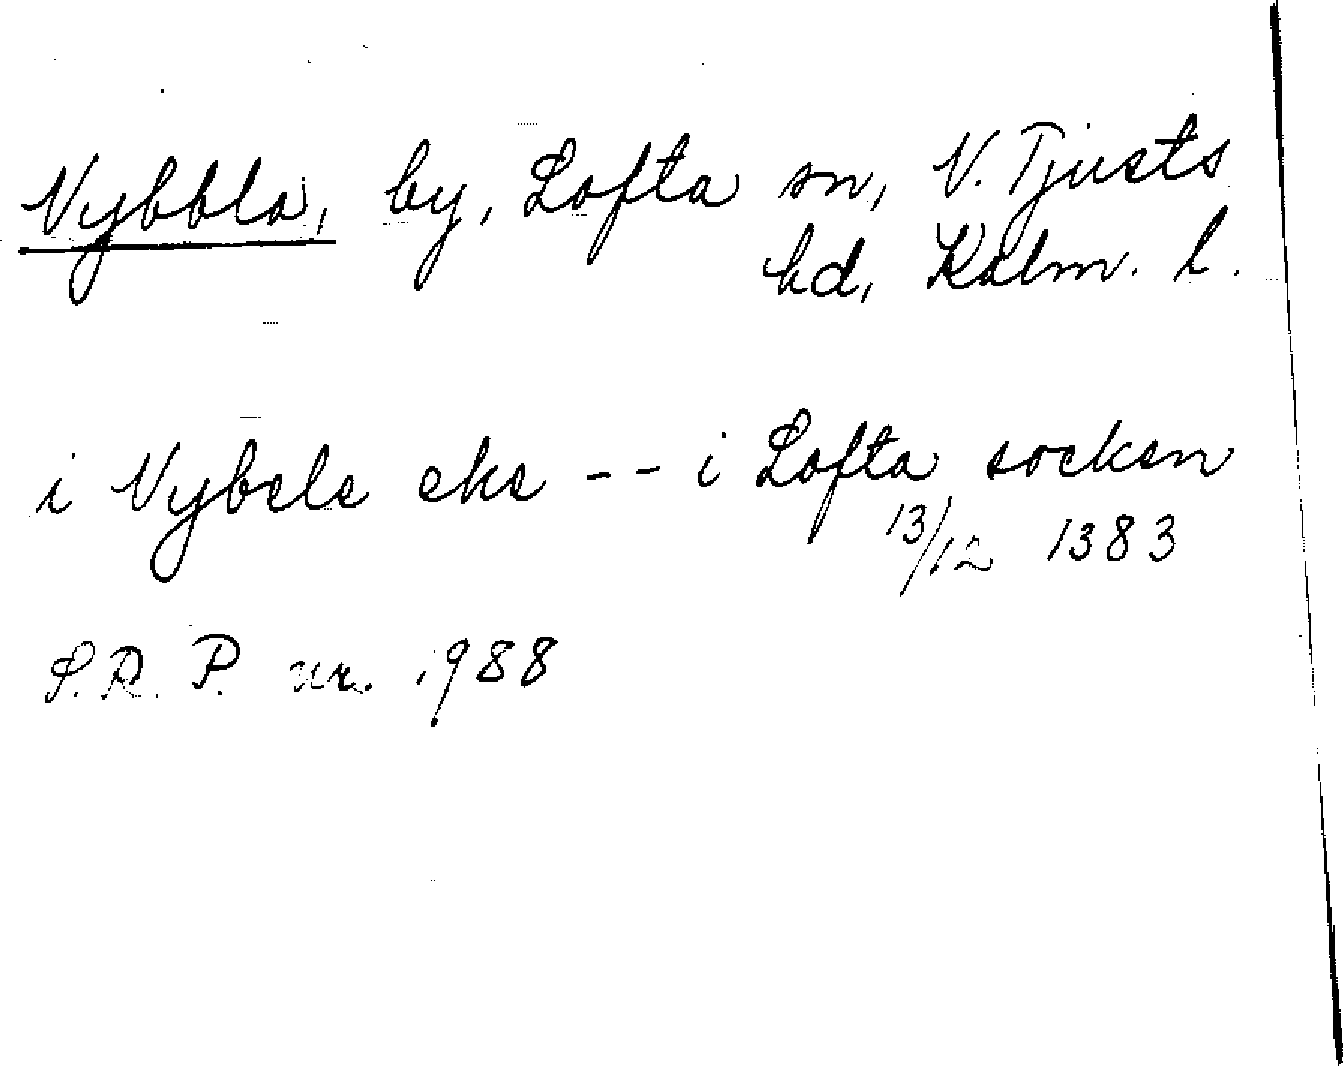 Vybbla, by, Lofta sn, V. Tjusts
hd, Kalm. l.
i Vybele eke -- i Lofta socken
13/12 1383
S.R.P. nr. 1988